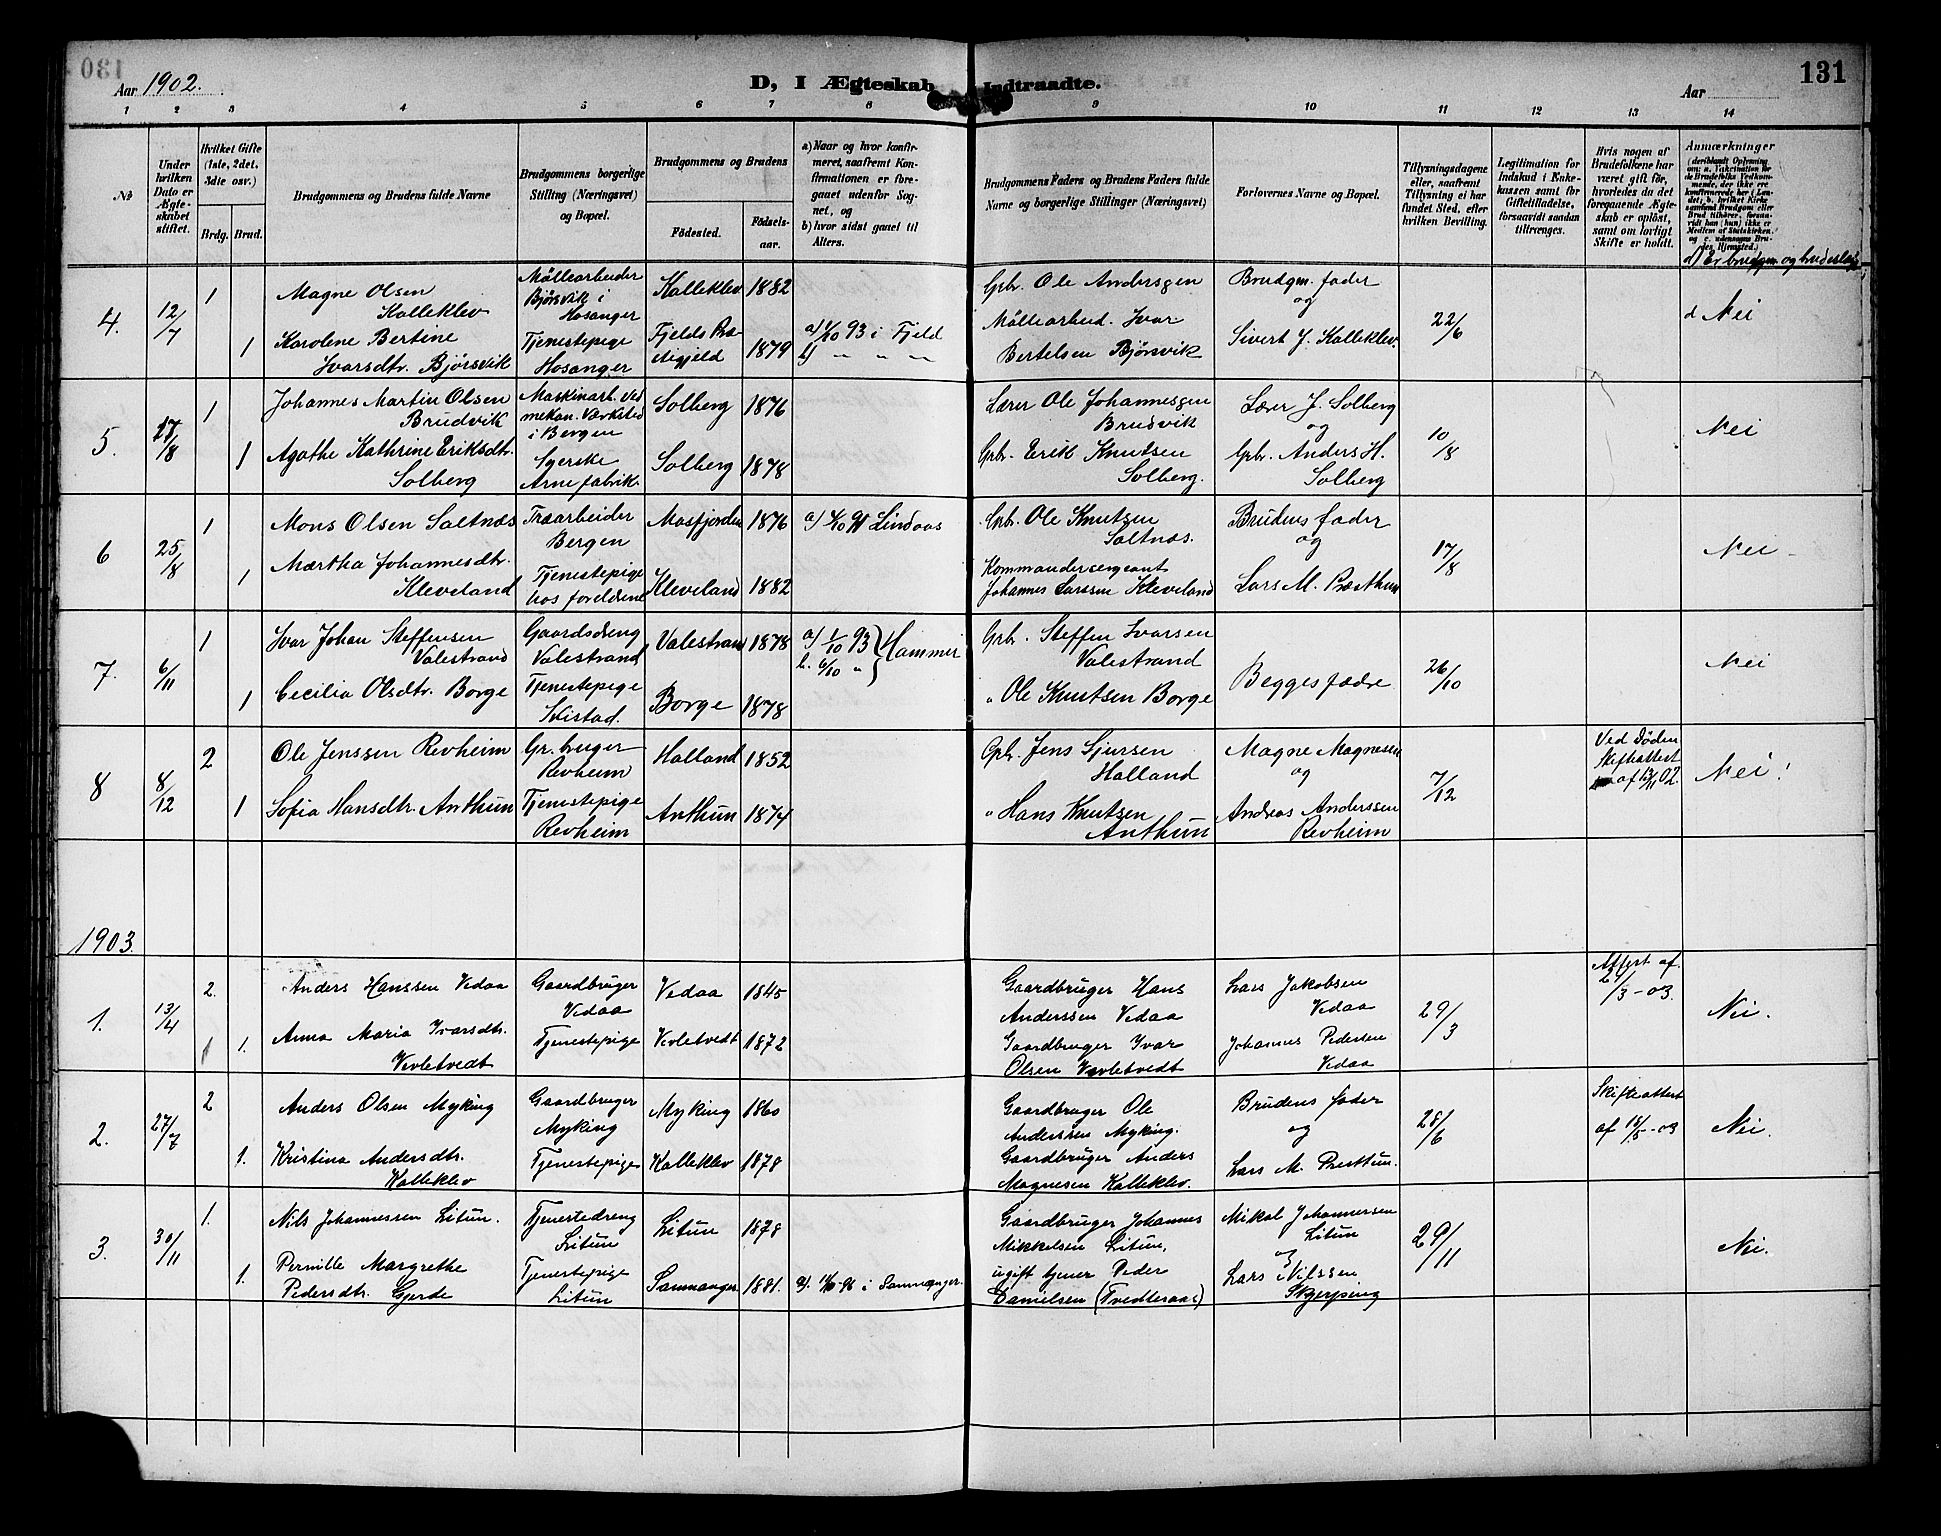 130
Aar 1902.
D, I Ægteskab Indtraadte.
131
Aar
1 2 3 4 5 6 7 8 9 10 11 12 13 14
№
Under hvilken Dato er Ægteskabet stiftet.
Hvilket Gifte (1ste, 2det, 3die osv.)
Brdg. Brud.
Brudgommens og Brudens fulde Navne
Brudgommens borgerlige Stilling (Næringsvei) og Bopæl.
Brudgommens og Brudens
Födested.
Födsels-aar.
a) Naar og hvor konfirmeret, saafremt Konfirmationen er foregaaet udenfor Sognet, og
b) hvor sidst gaaet til Alters.
Brudgommens Faders og Brudens Faders fulde Navne og borgerlige Stillinger (Næringsvei)
Forlovernes Navne og Bopæl.
Tillysningsdagene eller, saafremt Tillysning ei har fundet Sted, efter hvilken Bevilling.
Legitimation for Indskud i Enkekassen samt for Giftetilladelse, forsaavidt saadan tiltrænges.
Hvis nogen af Brudefolkene har været gift før, hvorledes da det foregaaende Ægteskab er oplöst, samt om lovligt Skifte er holdt.
Anmærkninger
d) Er brudgm og brud beslægt
4.
12/7
1
Magne Olsen
Kalleklev
Möllearbeider
Bjørsvik i
Hosanger
Kalleklev 1882
Gpbr. Ole Andersgen
Brudgm. fader
og
22/6
d Nei
1
Karolene Bertine
Ivarsdtr. Bjørsvik
Tjenestepige
Hosanger
Fjelds Præ
stegjeld 1879
a) 1/10 93 i Fjeld
b) " " "
Möllearbeid. Ivar
Bertelsen Bjørsvik
Sivert J. Kalleklev.
5.
17/8
1
Johannes Martin Olsen
Brudvik
Maskinarb. ved
mekan. Værksted
i Bergen
Solberg 1876
Lærer Ole Johannesgen
Brudvik
Lærer J. Solberg
og
10/8
Nei
1
Agathe Kathrine Eriksdtr.
Solberg
Syerske
Arne fabrik.
Solberg 1878
Gpbr. Erik Knutsen
Solberg.
Gpbr. Anders H.
Solberg
6
25/8
1
Mons Olsen Saltnæs
Træarbeider
Bergen
Masfjorden 1876
a) 4/10 91 Lindaas
Gpbr. Ole Knutsen
Saltnæs.
Brudens fader
og
17/8
Nei
1
Martha Johannesdtr.
Kleveland
Tjenestepige
hos foreldrene
Kleveland 1882
Kommandersergeant
Johannes Larssen Kleveland
Lars M. Præsthun
7.
6/11
1
Ivar Johan Steffensen
Valestrand
Gaardsdreng
Valestrand
Valestrand 1878
a) 1/10 93
b. 6/10 "
Hammer
Gpbr. Steffen Ivarsen
Valestrand
Begges fædre
26/10
Nei
1
Cecilia Olsdtr. Borge
Tjenestepige
Borge 1878
" Ole Knutsen Borge
8
8/12
2
Ole Jenssen Revheim
Gr. bruger
Revheim
Halland 1852
Gpbr. Jens Sjursen
Halland
Magne Magnessen
og
7/12
Ved Døden
Skifteattest
af 13/11 02.
Nei!
1
Sofia Hansdtr. Anthun
Tjenestepige
Revheim
Anthun 1874
" Hans Knutsen
Anthun
Andreas Anderssen
Revheim
1903.
1.
13/4
2.
Anders Hanssen Vedaa
Gaardbruger
Vedaa
Vedaa 1845
Gaardbruger Hans
Anderssen Vedaa
Lars Jakobsen
Vedaa
29/3
Attest af
21/3-03.
Nei.
1.
Anna Maria Ivarsdtr.
Vevletvedt
Tjenestepige
Vevletvedt 1872
Gaardbruger Ivar
Olsen Vevletvedt
Johannes Pedersen
Vedaa
2.
27/7
2
Anders Olsen Myking
Gaardbruger
Myking
Myking 1860
Gaardbruger Ole
Anderssen Myking.
Brudens fader
og
28/6
Skifteattest
af 18/5-03
Nei.
1.
Kristina Andersdtr.
Kalleklev
Tjenestepige
Kalleklev 1878
Gaardbruger Anders
Magnesen Kalleklev.
Lars M. Presttun.
3.
30/11
1.
Nils Johannessen Litun.
Tjenestedreng
Litun
Litun 1878
Gaardbruger Johannes
Mikkelsen Litun.
Mikal Johannersen
Litun
og
29/11
Nei.
1.
Pernille Margrethe
Pedersdtr. Gjerde
Tjenestepige
Litun
Samnanger. 1881.
i Samnanger.
ugift tjener Peder
Danielsen (Tvedteraas)
Lars Nilssen
Skjerping